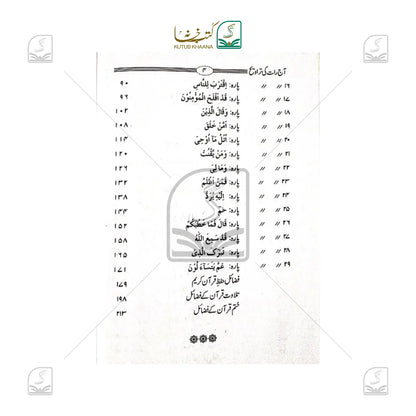 کتب خانہ
KUTUB KHAANA
آج رات کی تراویح ۳
۱۶ // // پارہ: اِقْتَرَبَ لِلنَّاسِ ۹۰
۱۷ // // پارہ: قَدْ اَفْلَحَ الْمُؤْمِنُوْنَ ۹۶
۱۸ // // پارہ: وَقَالَ الَّذِیْنَ ۱۰۲
۱۹ // // پارہ: اَمَّنْ خَلَقَ ۱۰۸
۲۰ // // پارہ: اُتْلُ مَآ اُوْحِیَ ۱۱۴
۲۱ // // پارہ: وَمَنْ یَّقْنُتْ ۱۲۰
۲۲ // // پارہ: وَمَا لِیَ ۱۲۶
۲۳ // // پارہ: فَمَنْ اَظْلَمُ ۱۳۲
۲۴ // // پارہ: اِلَیْهِ یُرَدُّ ۱۳۸
۲۵ // // پارہ: حٰم ۱۴۴
۲۶ // // پارہ: قَالَ فَمَا خَطْبُكُمْ ۱۵۲
۲۷ // // پارہ: قَدْ سَمِعَ اللّٰهُ ۱۵۸
۲۸ // // پارہ: تَبٰرَكَ الَّذِیْ ۱۶۵
۲۹ // // پارہ: عَمَّ یَتَسَآءَلُوْنَ ۱۷۱
فضائل حفظِ قرآن کریم ۱۷۹
تلاوت قرآن کے فضائل ۱۹۸
ختم قرآن کے فضائل ۲۱۳